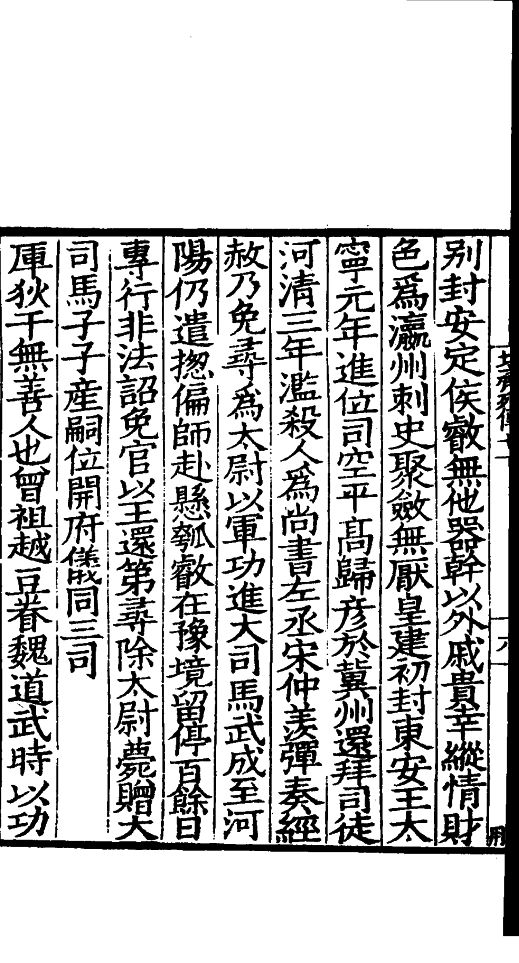 別封安定侯叡無他器幹以外戚貴幸縱情財
色爲瀛州刺史聚斂無厭皇建初封東安王太
寧元年進位司空平髙歸彦於兾州還拜司徒
河清三年濫殺人爲尚書左丞宋仲羨彈奏經
赦乃免尋爲太尉以軍功進大司馬武成至河
陽仍遣揔偏師赴懸瓠叡在豫境留停百餘日
專行非法詔免官以王還第尋除太尉薨贈大
司馬子子産嗣位開府儀同三司
厙狄干無善人也曾祖越豆眷魏道武時以功